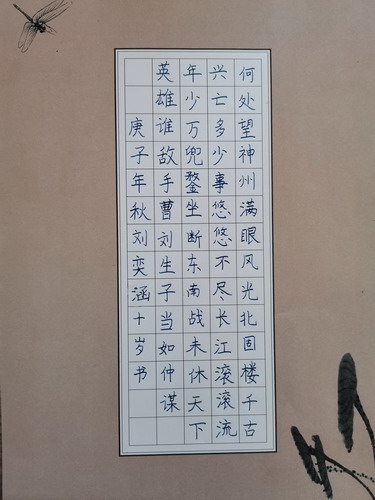 何处望神州满眼风光北固楼千古
兴亡多少事悠悠不尽长江滚滚流
年少万兜鍪坐断东南战未休天下
英雄谁敌手曹刘生子当如仲谋
庚子年秋刘奕涵十岁书